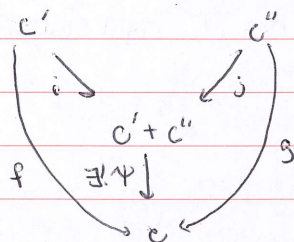 C' C''
i j
C' + C''
f ∃! Ψ g
C